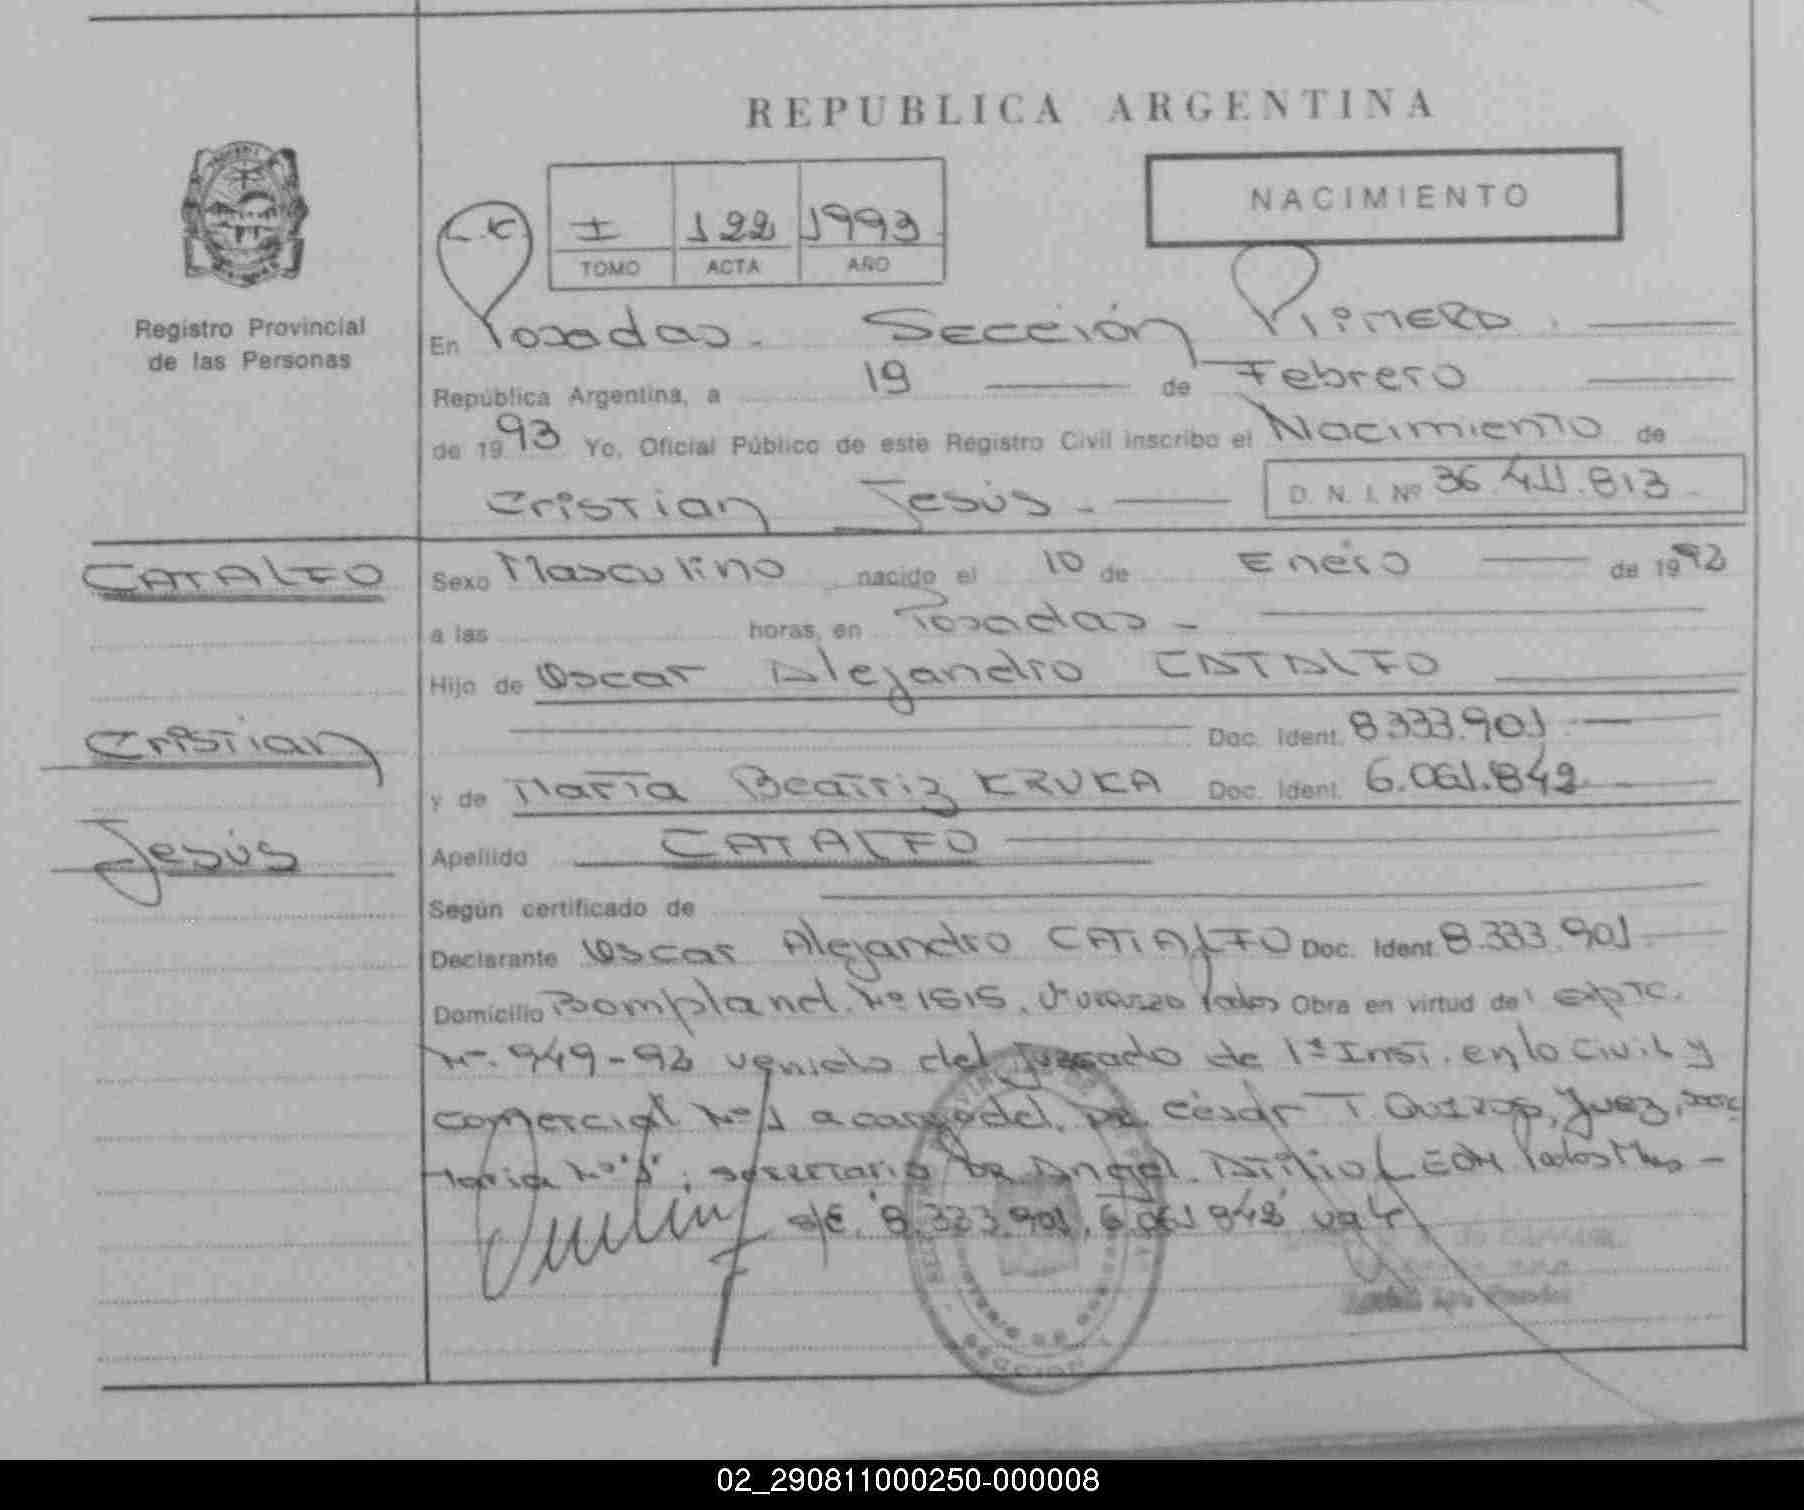 REPUBLICA ARGENTINA
NACIMIENTO
L.K.
I 122 1993
TOMO ACTA AÑO
Registro Provincial
de las Personas
En Posadas. Sección Primera.
República Argentina, a 19 de Febrero
de 1993 Yo, Oficial Público de este Registro Civil inscribo el Nacimiento de
Cristian Jesús. D. N. I. Nº 36.411.813
CATALFO
Sexo Masculino nacido el 10 de Enero de 1992
a las horas, en Posadas -
Hijo de Oscar Alejandro CATALFO
Cristian
Doc. Ident. 8.333.901
y de María Beatriz KRUKA Doc. Ident. 6.061.842
Jesús
Apellido CATALFO
Según certificado de
Declarante Oscar Alejandro CATALFO Doc. Ident. 8.333.901
Domicilio Bompland. Nº 1515, Obra en virtud del expte.
Nº 949-92 venido del juzgado de 1ª Inst. en lo Civil y
comercial Nº 1 a cargo del Dr. César T. Quiroz, Juez, Secre
taria Nº 1, secretario Dr Angel Atilio LEON -
s/e. 8.333.901, 6.061.842 vale
SECCION 1
02_290811000250-000008